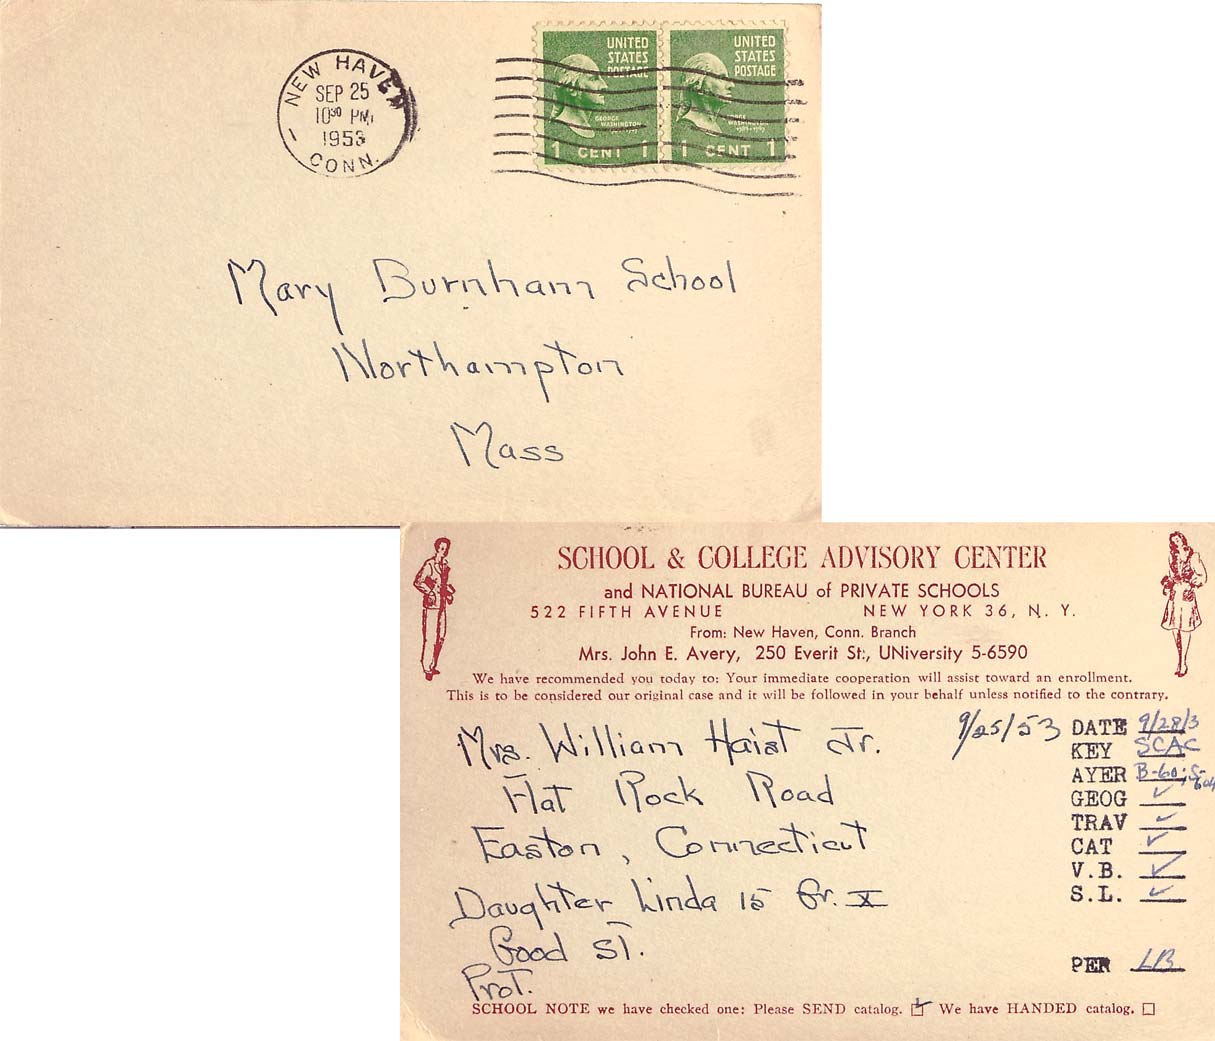 NEW HAVEN
SEP 25
10 30 PM
1953
CONN.
UNITED STATES POSTAGE
GEORGE WASHINGTON
1789-1797
1 CENT 1
UNITED STATES POSTAGE
GEORGE WASHINGTON
1789-1797
1 CENT 1
Mary Burnham School
Northampton
Mass
SCHOOL & COLLEGE ADVISORY CENTER
and NATIONAL BUREAU of PRIVATE SCHOOLS
522 FIFTH AVENUE NEW YORK 36, N. Y.
From: New Haven, Conn. Branch
Mrs. John E. Avery, 250 Everit St., UNiversity 5-6590
We have recommended you today to: Your immediate cooperation will assist toward an enrollment.
This is to be considered our original case and it will be followed in your behalf unless notified to the contrary.
9/25/53
Mrs. William Haist Jr.
Flat Rock Road
Easton, Connecticut
Daughter Linda 15 Gr. X
Good ST.
Prot.
DATE 9/28/3
KEY SCAC
AYER B-60;
GEOG ✓
TRAV ✓
CAT ✓
V.B. ✓
S.L. ✓
PER LB
SCHOOL NOTE we have checked one: Please SEND catalog. ☑ We have HANDED catalog. ☐